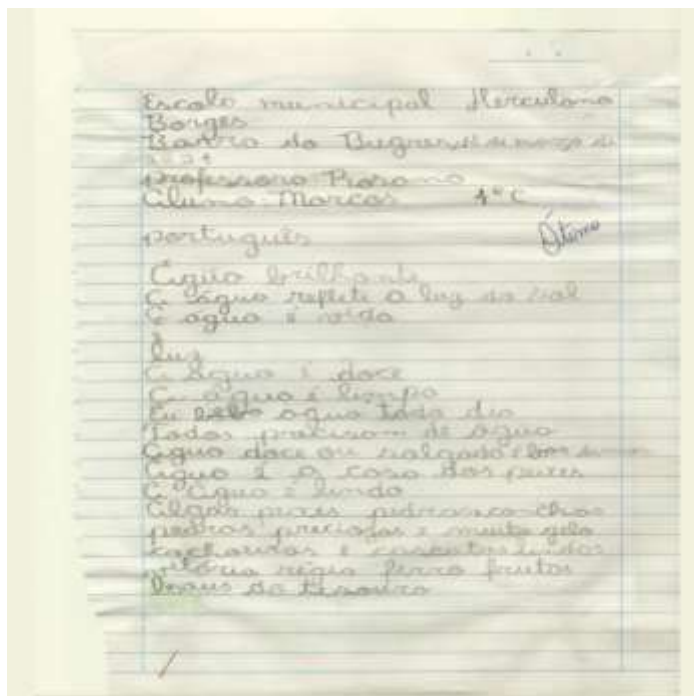 Escola municipal Herculano
Borges
Barra do Bugres
professora Rosa
Aluno Marcos 4º C
português
Ótimo
Água brilhante
A água reflete a luz do sol
A agua é vida
luz
A água é doce
A água é limpa
Eu bebo agua todo dia
Todos precisam de água
Água doce ou salgada é bom
Água é a casa dos peixes
A água é linda
peixes
pedras preciosas e muito gelo
cachoeiras e
vitória régia ferro frutos
do tesouro